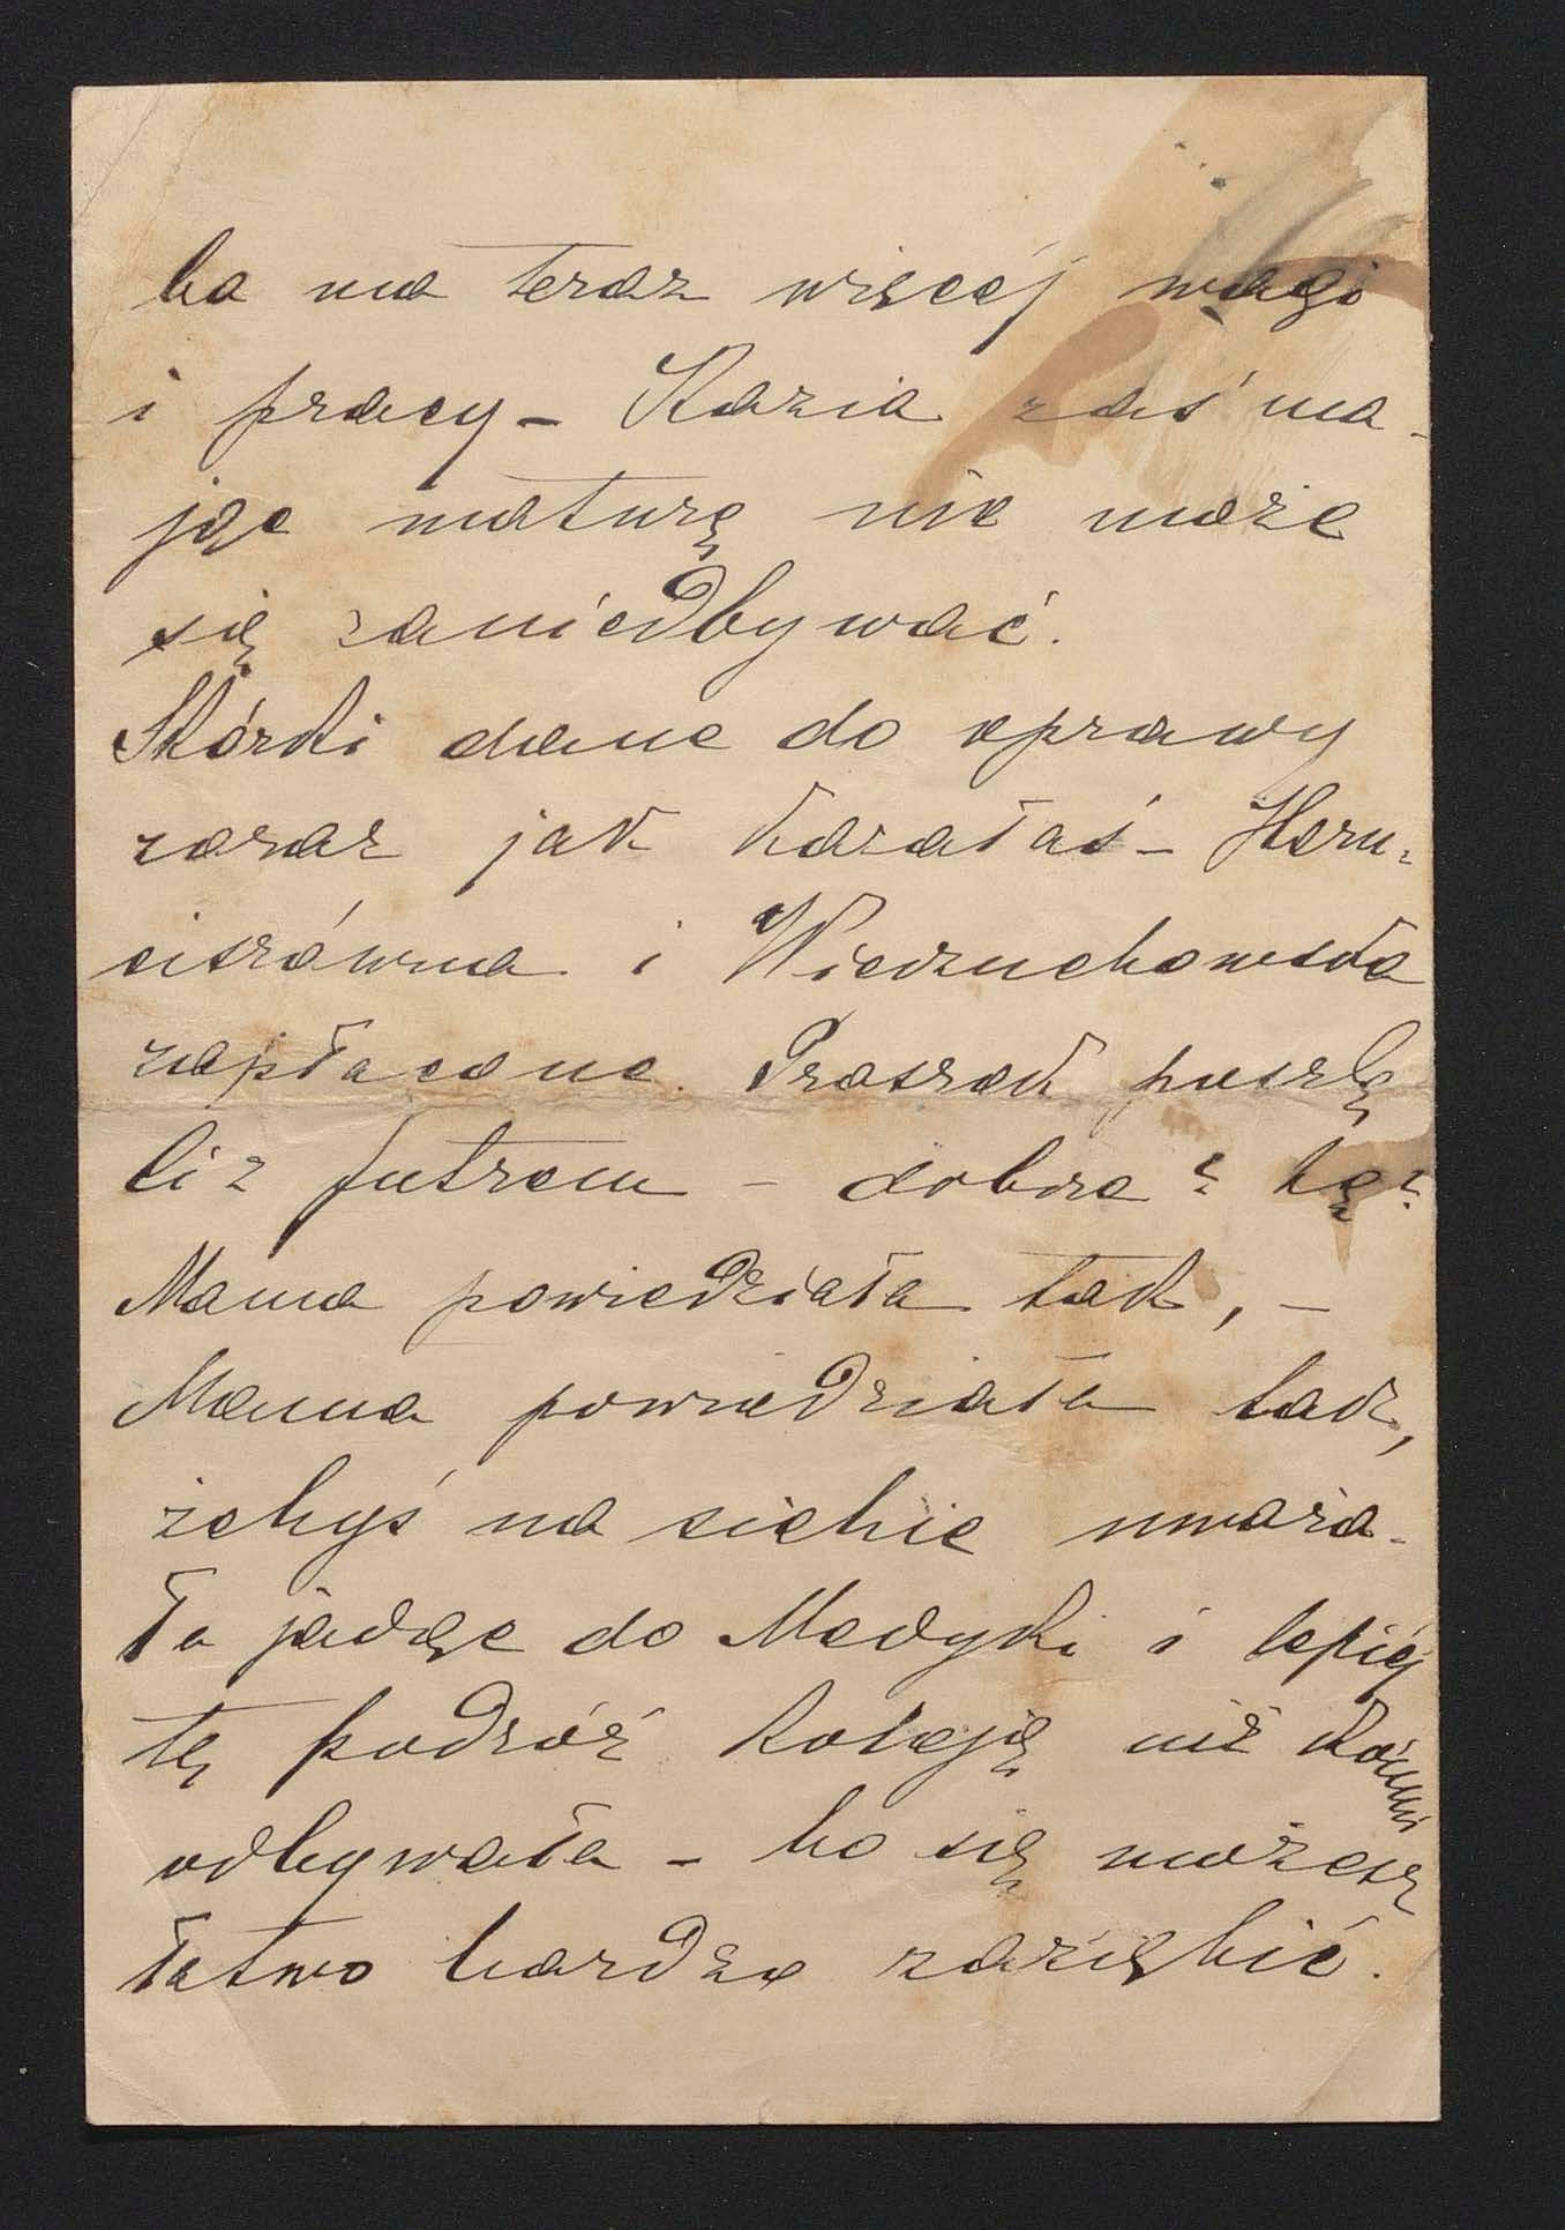 ba ma teraz więcej wagi
i pracy – Kazia zaś ma-
jąc maturę nie może
się zaniedbywać.
Skórki dane do oprawy
zaraz jak kazałaś –
i Wierzuchowska
zapłacone. Proszek
futrem – dobrze?
Mama powiedziała tak, –
Mama powiedziała tak,
żebyś na siebie uważa-
ła jadąc do Medyki i lepiej
tę podróż koleją niż końmi
odbywała – bo się możesz
łatwo bardzo zaziębić.